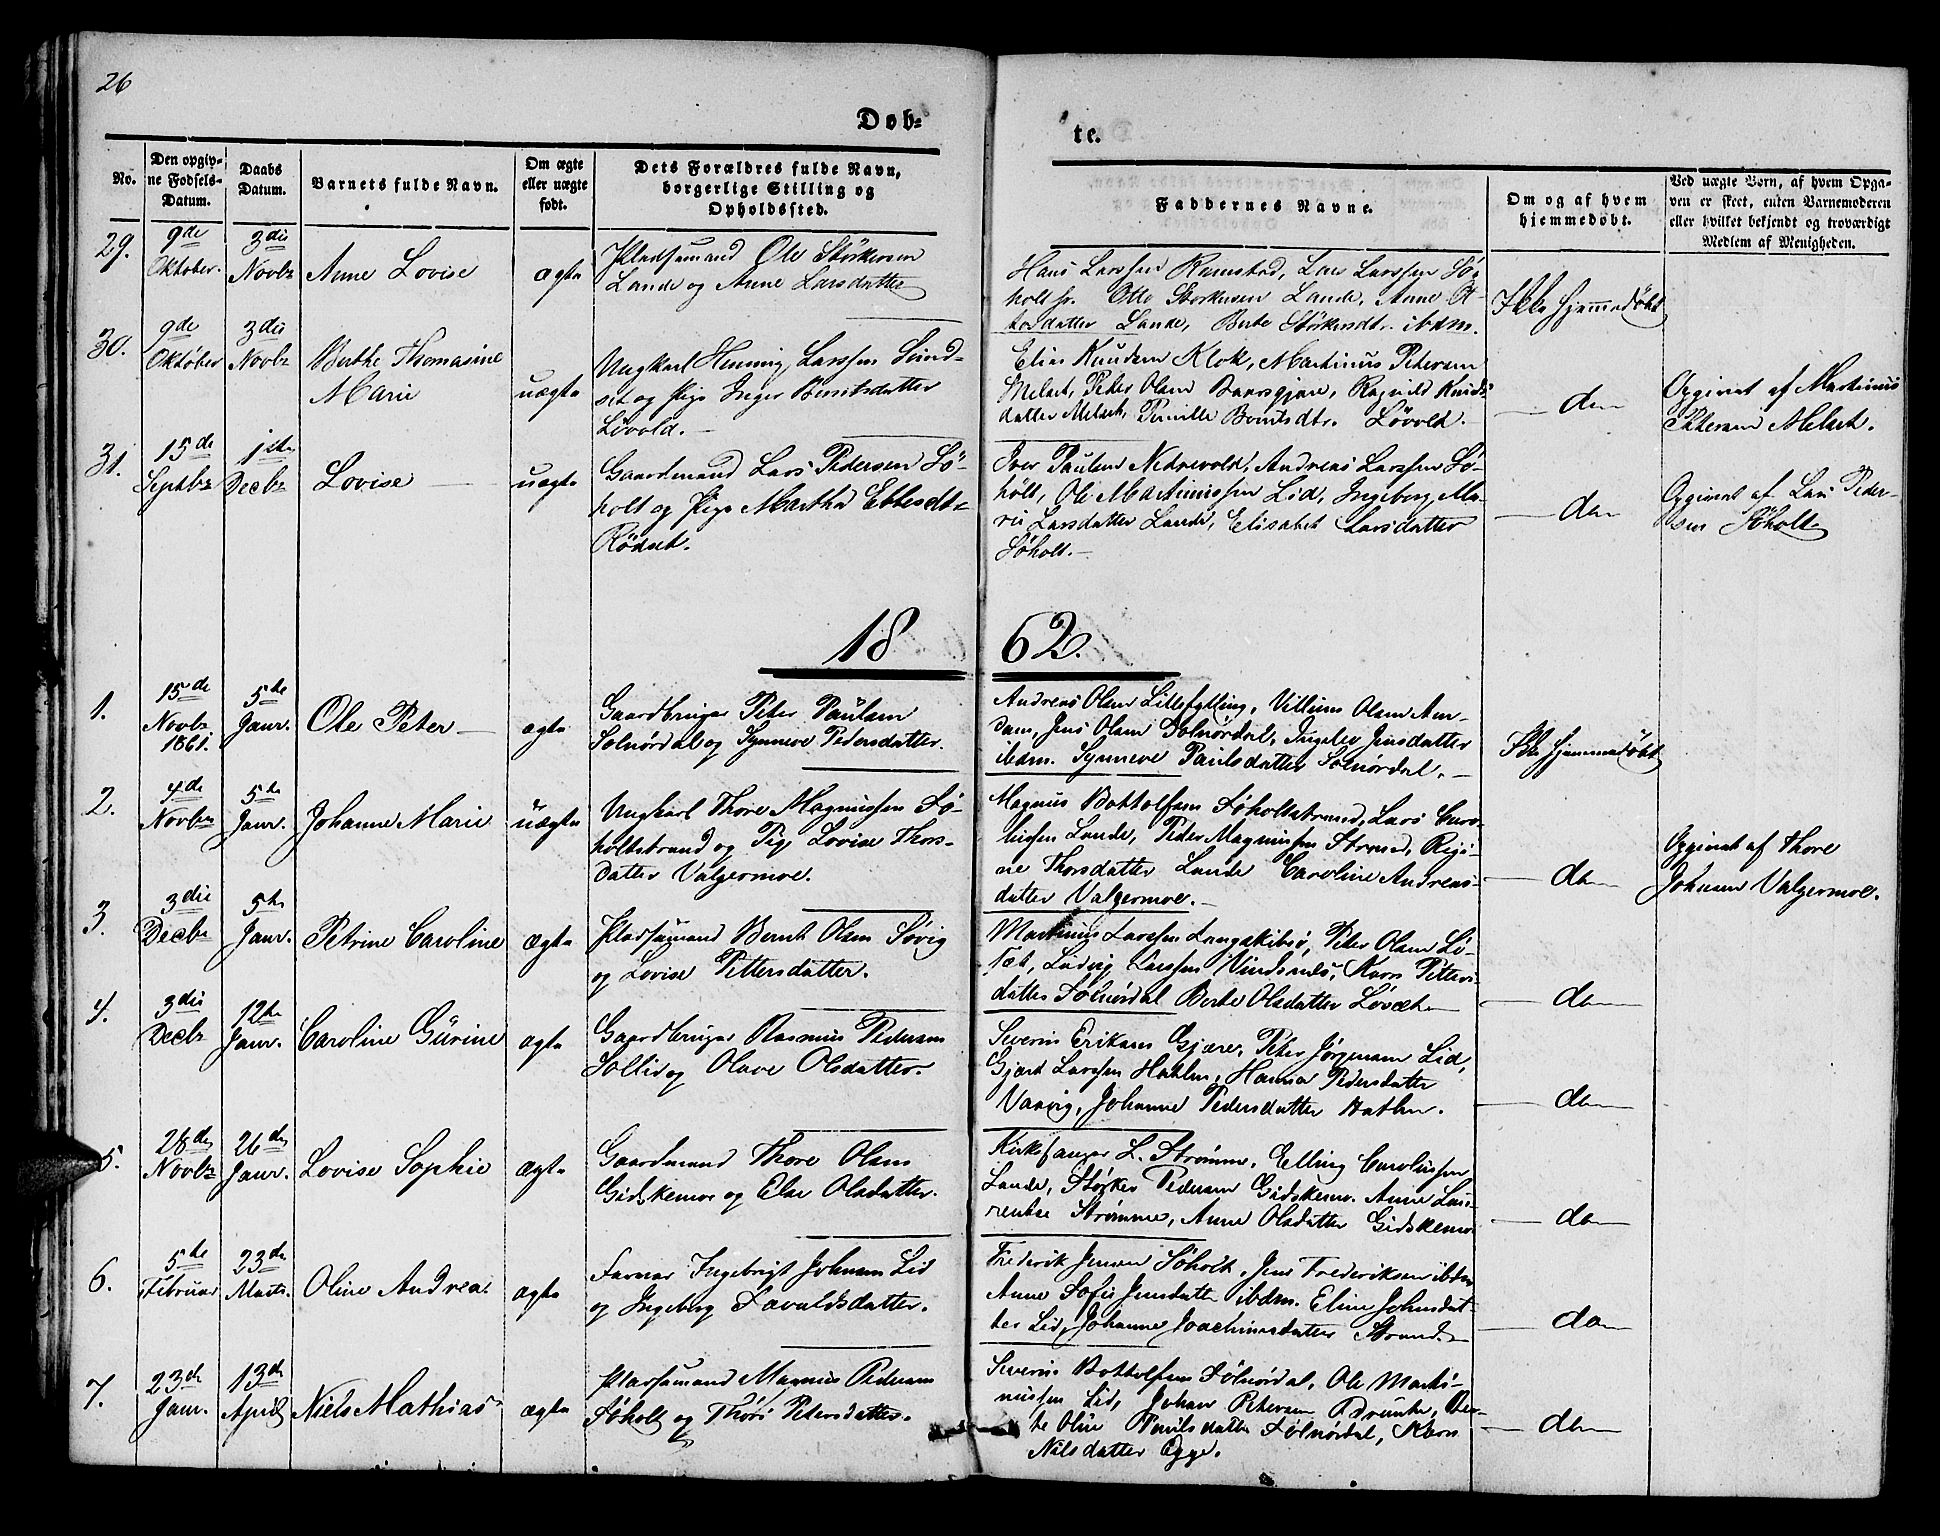 26
Døb-
te.
No.
Den opgiv-
ne Fødsels-
Datum.
Daabs
Datum.
Barnets fulde Navn.
Om ægte
eller uægte
født.
Dets Forældres fulde Navn,
borgerlige Stilling og
Opholdssted.
Faddernes Navne.
Om og af hvem
hjemmedøbt.
Ved uægte Børn, af hvem Opga-
ven er skeet, enten Barnemoderen
eller hvilket bekjendt og troværdigt
Medlem af Menigheden.
29.
9de
Oktober.
3die
Novbr
Anne Lovise
ægte
Pladsemand Ole Størkersen
Lande og Anne Larsdatter
Hans Larssen Ramstad, Lars Larssen Sø-
holt sr. Otto Størkersen Lande, Anne
datter Lande, Berte Størkersdtr. ibdm.
Ikke hjemmedøbt
30.
9de
Oktober
3die
Novbr
Berthe Thomasine
Marie
uægte
Ungkarl Henning Larssen
set og Pige Inger Berntsdatter
Løvold.
Elias Knudsen Klok, Martinus Petersen
Melset, Peter Olsen, Ragnild Knuds-
datter Melset, Pernille Berntsdtr. Løvold.
do
Opgivet af Martinus
Petersen Melset.
31.
15de
Septbr
1ste
Decbr
Lovise
uægte
Gaardmand Lars Pedersen Sø-
holt og Pige Martha Ebbesdtr
Rødset.
Iver Paulsen Nedrevold, Andreas Larssen Sø-
holt, Ole Martinussen Lid, Ingeborg Ma-
rie Larsdatter Lande, Elisabet Larsdatter
Søholt.
do
Opgivet af Lars Peder-
sen Søholt
1862.
1.
15de
Novbr
1861.
5te
Janr.
Ole Peter
ægte
Gaardbruger Peter Paulsen
Solnørdal og Synneve Pedersdatter.
Andreas Olsen Lillefylling, Villum Olsen Am-
dam, Jens Olsen Solnørdal, Ingeborg Jensdatter
ibdm. Synneve Paulsdatter Solnørdal.
Ikke hjemmedøbt
2.
4de
Novbr
5te
Janr.
Johanne Marie
uægte
Ungkarl Thore Magnussen Sø-
holtstrand og Pige Lovise Thors-
datter Valgermoe.
Magnus Bottolfsen Søholtstrand, Lars
Lande, Peder Magnussen Strand, Regi-
ne Thorsdatter Lande Caroline Andreas-
datter Valgermoe.
do
Opgivet af Thore
Johnsen Valgermoe.
3.
3die
Decbr
5te
Janr.
Petrine Caroline
ægte
Pladsemand Bernt Olsen Søvig
og Lovise Pettersdatter.
Martinus Larssen Langskibsø, Peter Olsen
Ludvig Larssen Vindsnes, Karn Petters-
datter Solnørdal Berte Olsdatter
do
4.
3die
Decbr
12te
Janr.
Caroline Gurine
ægte
Gaardbruger Rasmus Pedersen
Sollid og Olave Olsdatter.
Severin Eriksen Gjære, Peter Jørgensen Lid,
Gjært Larssen Hatlen, Hanna Pedersdatter
Vaagig, Johanne Pedersdatter Hatlen.
do
5.
28de
Novbr
26de
Janr.
Lovise Sophie
ægte
Gaardmand Thore Olsen
Gidskemoe og Else Olsdatter.
Kirkesanger L. Strømme, Elling Carolussen
Lande, Størker Pedersen Gidskemo. Anne Lau-
rentse Strømme, Anne Olsdatter Gidskemo
do
6.
5te
Februar
23de
Marts.
Oline Andrea.
ægte
Farver Ingebrigt Johnsen Lid
og Ingeborg Savaldsdatter.
Frederik Jensen Søholt, Jens Frederiksen ibdm
Anne Sofie Jensdatter ibdm. Eline Johnsdat-
ter Lid, Johanne Joachimsdatter Strand
do
7.
23de
Janr.
13de
April
Niels Mathias
ægte
Pladsemand Magnus Pedersen
Søholt og Thora Petersdatter.
Severin Bottolfsen Solnørdal, Ole Marti-
nussen Lid, Johan Petersen, Ber-
te Oline Paulsdatter Solnørdal, Karn
Nilsdatter Egge.
do